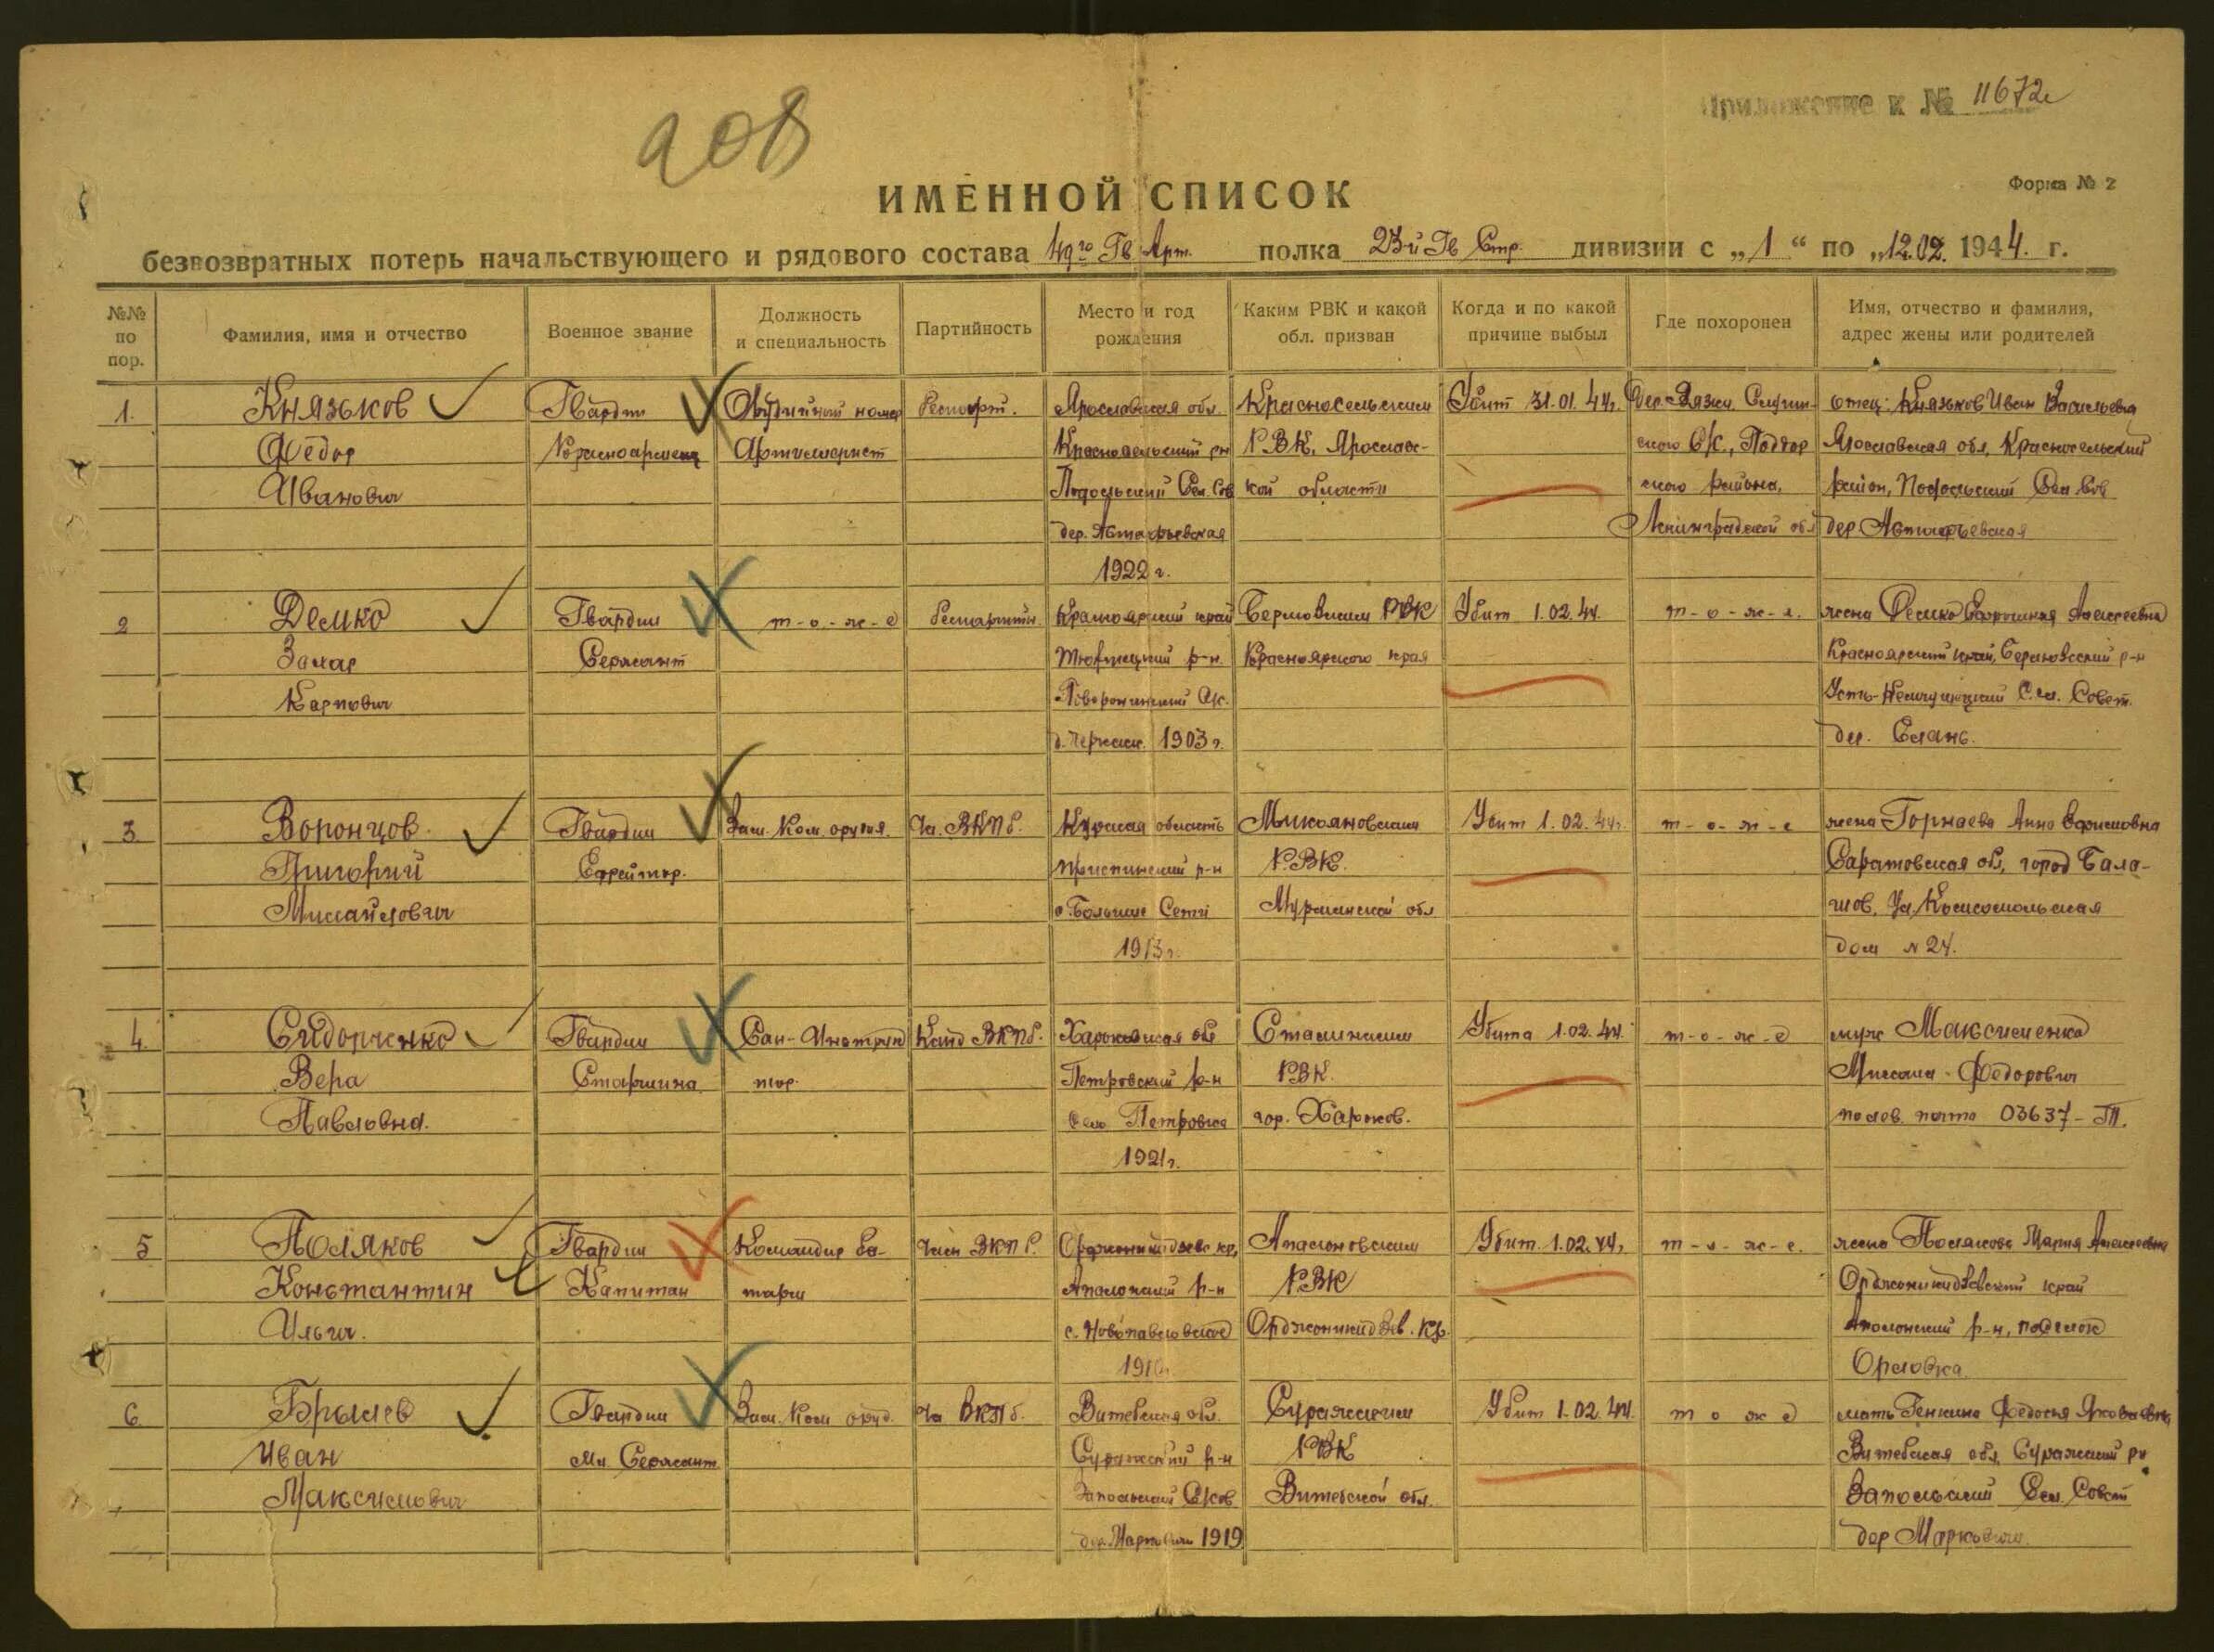 Приложение к № 11672
208
ИМЕННОЙ СПИСОК
Форма № 2
безвозвратных потерь начальствующего и рядового состава 49го Гв Арт. полка 23й Гв Стр. дивизии с „1“ по „12.02. 1944. г.
№№ по пор.
Фамилия, имя и отчество
Военное звание
Должность и специальность
Партийность
Место и год рождения
Каким РВК и какой обл. призван
Когда и по какой причине выбыл
Где похоронен
Имя, отчество и фамилия, адрес жены или родителей
1. Князьков Гвардии Орудийный номер Беспарт. Ярославская обл. Красносельским Убит 31.01.44г. Дер. отец: Князьков Иван Васильевич
Фёдор Красноармеец Артиллерист Красносельский рн РВК, Ярославс- ского С/с., Поддор Ярославская обл, Красносельский
Иванович Подольский Сел. Сов кой области ского района, район, Подольский Сел Сов
дер. Астафьевская Ленинградской обл дер Астафьевская
1922 г.
2 Демко Гвардии т-о-ж-е Беспартийн. Красноярский край РВК Убит 1.02.44. т-о-ж-е. жена Демко Алексеевна
Захар Сержант Тюхтецкий р-н. Красноярского края Красноярский край, р-н
Карпович С/с. Сел. Совет.
д. 1903 г. дер. Елань.
3. Воронцов Гвардии Зам. Ком. орудия. Чл. ВКПб. Курская область Микояновским Убит 1.02.44г. т-о-ж-е жена Анна
Григорий Ефрейтор. р-н РВК. Саратовская обл, город Бала-
Михайлович Большие Сети Мурманской обл шов, Ул. Комсомольская
1913г. дом №24.
4. Сидорченко Гвардии Сан-Инструк Канд ВКПб. Харьковская обл Сталинским Убита 1.02.44. т-о-ж-е муж Максименко
Вера Старшина тор. Петровский р-н РВК. Михаил Федорович
Павловна. село Петровка гор. Харьков. полев. почта 03637-Т.
1921г.
5 Поляков Гвардии Командир ба- Член ВКПб. Орджоникидзевс кр, Аполоновским Убит 1.02.44г. т-о-ж-е. жена Полякова Мария Алексеевна
Константин Капитан тареи Аполонский р-н РВК Орджоникидзевский край
Ильич. с. Новопавловское Орджоникидзев. Кр. Аполонский р-н, поселок
Орловка
6 Брылев Гвардии Зам. Ком оруд. Чл ВКПб. Витебская обл. Суражским Убит 1.02.44. т о ж е мать Генкина Федосья Яковлевна
Иван Мл. Сержант Суражский р-н РВК Витебская обл, Суражский рн
Максимович Запольский С/сов Витебской обл. Запольский Сел. Совет
дер. 1919 дер